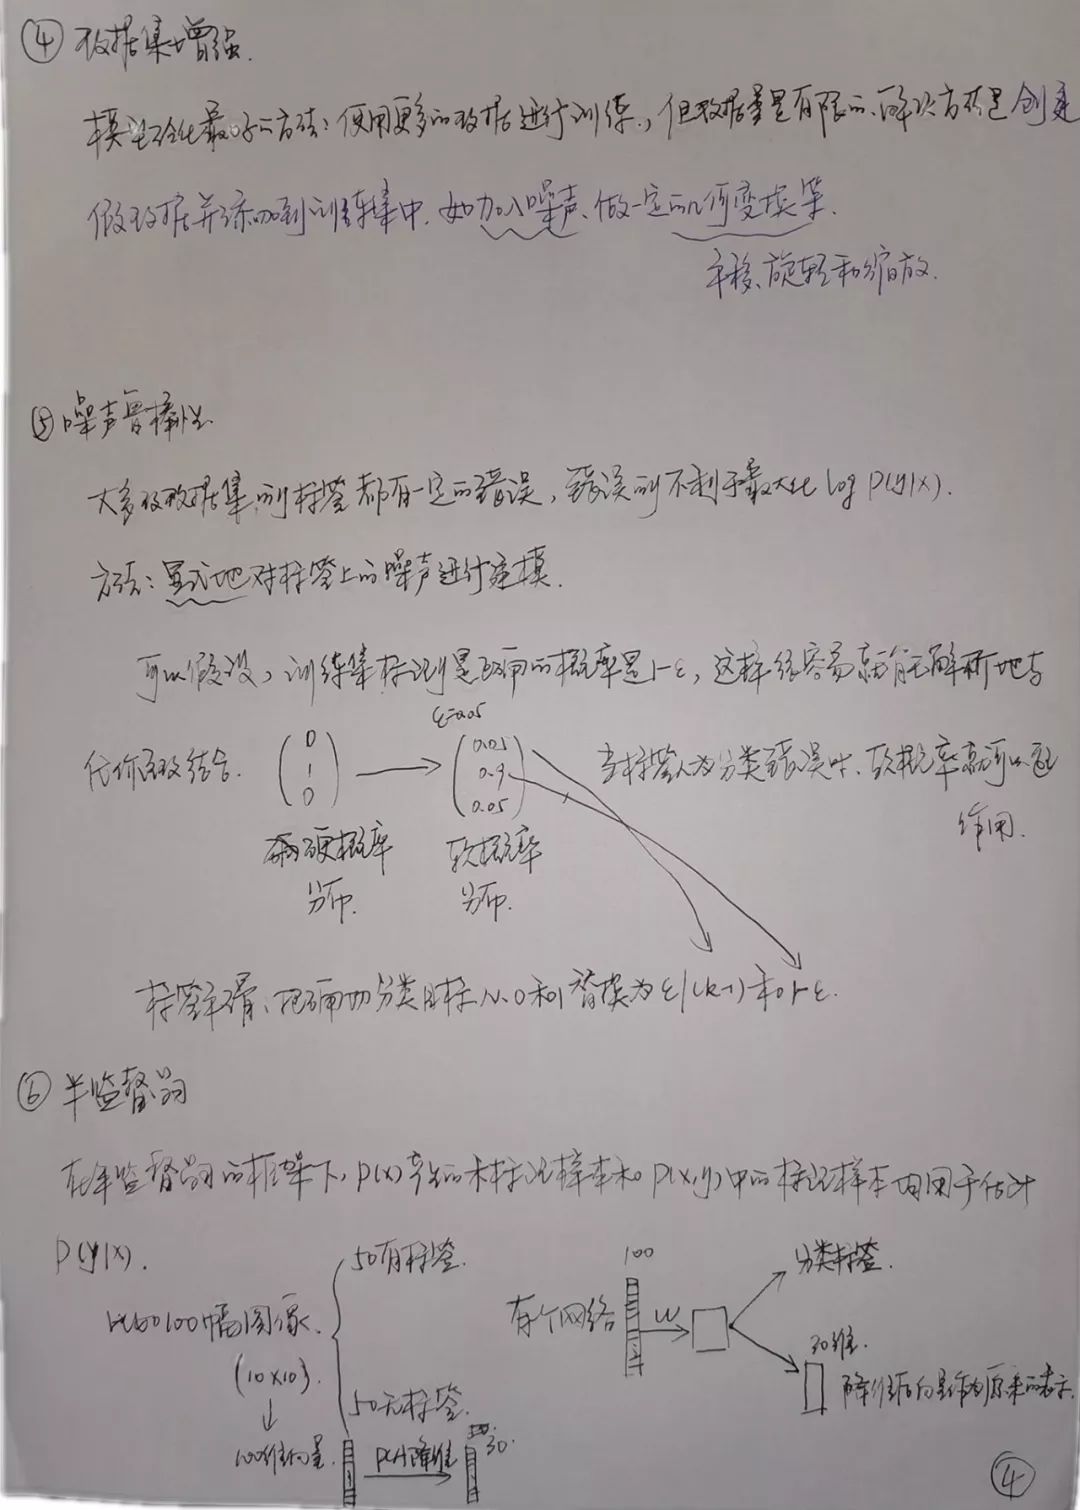 ④ 数据集增强.
模型泛化最好的方法：使用更多的数据进行训练，但数据量是有限的、解决方法是创建
假数据并添加到训练集中. 如加入噪声、做一定的几何变换等.
平移、旋转和缩放.
⑤ 噪声鲁棒性
大多数数据集的标签都有一定的错误，错误的不利于最大化 log P(y|x).
方法：显式地对标签上的噪声进行建模.
可以假设，训练集标记是正确的概率是1-ε，这样很容易就能解析地与
ε=0.05
代价函数结合. (0 1 0) → (0.05 0.9 0.05) 当标签人为分类错误时、软概率就可以起
作用.
硬概率 软概率
分布. 分布.
标签平滑、把确切分类目标从0和1替换为 ε/(k-1) 和 1-ε.
⑥ 半监督学习
在半监督学习的框架下，P(x)产生的未标记样本和 P(x,y)中的标记样本均用于估计
P(y|x).
50有标签.
比如100幅图像.
(10×10).
50无标签.
100维向量 PCA降维 30.
100
有个网络 W
分类标签.
30维.
降维后向量作为原来的表示.
④